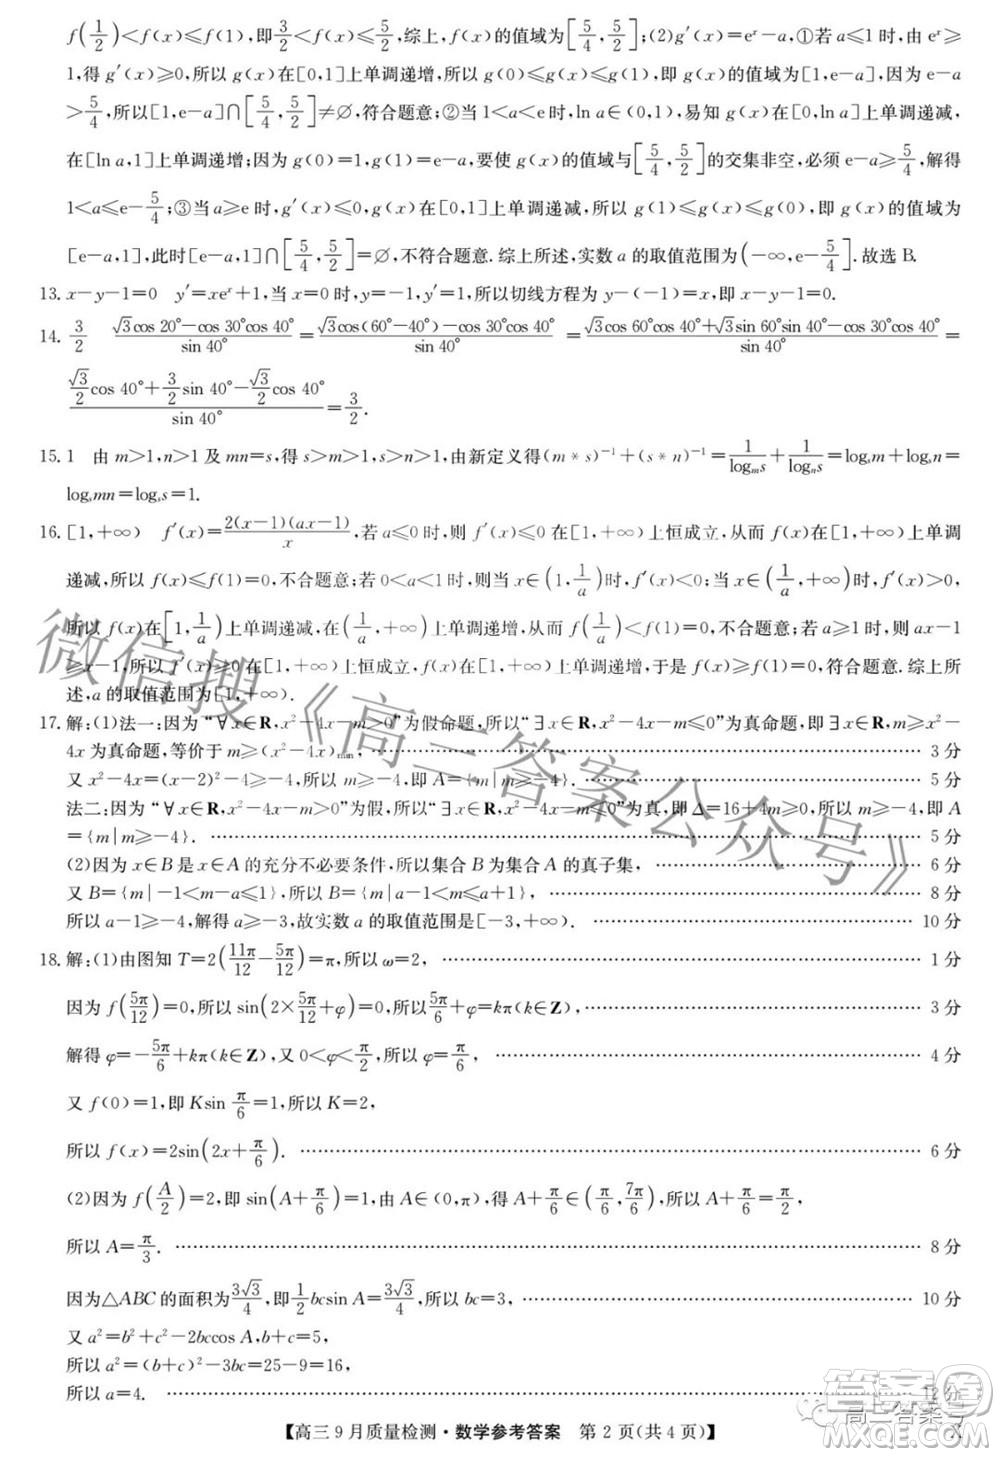 f(1/2)<f(x)≤f(1),即3/2<f(x)≤5/2,综上,f(x)的值域为[5/4,5/2];(2)g′(x)=eˣ−a,①若a≤1时,由eˣ≥
1,得g′(x)≥0,所以g(x)在[0,1]上单调递增,所以g(0)≤g(x)≤g(1),即g(x)的值域为[1,e−a],因为e−a
>5/4,所以[1,e−a]∩[5/4,5/2]≠∅,符合题意;②当1<a<e时,ln a∈(0,1),易知g(x)在[0,ln a]上单调递减,
在[ln a,1]上单调递增;因为g(0)=1,g(1)=e−a,要使g(x)的值域与[5/4,5/2]的交集非空,必须e−a≥5/4,解得
1<a≤e−5/4;③当a≥e时,g′(x)≤0,g(x)在[0,1]上单调递减,所以g(1)≤g(x)≤g(0),即g(x)的值域为
[e−a,1],此时[e−a,1]∩[5/4,5/2]=∅,不符合题意.综上所述,实数a的取值范围为(−∞,e−5/4].故选B.
13.x−y−1=0 y′=xeˣ+1,当x=0时,y=−1,y′=1,所以切线方程为y−(−1)=x,即x−y−1=0.
14.3/2 (√3cos 20°−cos 30°cos 40°)/sin 40°=(√3cos(60°−40°)−cos 30°cos 40°)/sin 40°=(√3cos 60°cos 40°+√3sin 60°sin 40°−cos 30°cos 40°)/sin 40°=
(√3/2cos 40°+3/2sin 40°−√3/2cos 40°)/sin 40°=3/2.
15.1 由m>1,n>1及mn=s,得s>m>1,s>n>1,由新定义得(m∗s)⁻¹+(s∗n)⁻¹=1/logₘs+1/logₙs=logₛm+logₛn=
logₛmn=logₛs=1.
16.[1,+∞) f′(x)=2(x−1)(ax−1)/x,若a≤0时,则f′(x)≤0在[1,+∞)上恒成立,从而f(x)在[1,+∞)上单调
递减,所以f(x)≤f(1)=0,不合题意;若0<a<1时,当x∈(1,1/a)时,f′(x)<0;当x∈(1/a,+∞)时,f′(x)>0,
所以f(x)在[1,1/a)上单调递减,在(1/a,+∞)上单调递增,从而f(1/a)<f(1)=0,不合题意;若a≥1时,则ax−1
≥x−1,所以f′(x)在[1,+∞)上恒成立,f(x)在[1,+∞)上单调递增,于是f(x)≥f(1)=0,符合题意.综上所
述,a的取值范围为[1,+∞).
17.解:(1)法一:因为“∀x∈R,x²−4x−m>0”为假命题,所以“∃x∈R,x²−4x−m≤0”为真命题,即∃x∈R,m≥x²−
4x为真命题,等价于m≥(x²−4x)min, 3分
又x²−4x=(x−2)²−4≥−4,所以m≥−4,即A={m|m≥−4}. 5分
法二:因为“∀x∈R,x²−4x−m>0”为假,所以“∃x∈R,x²−4x−m≤0”为真,即Δ=16+4m≥0,所以m≥−4,即A
={m|m≥−4}. 5分
(2)因为x∈B是x∈A的充分不必要条件,所以集合B为集合A的真子集, 6分
又B={m|−1<m−a<1},所以B={m|a−1<m<a+1}, 8分
所以a−1≥−4,解得a≥−3,故实数a的取值范围是[−3,+∞). 10分
18.解:(1)由图知T=2(11π/12−5π/12)=π,所以ω=2, 1分
因为f(5π/12)=0,所以sin(2×5π/12+φ)=0,所以5π/6+φ=kπ(k∈Z), 3分
解得φ=−5π/6+kπ(k∈Z),又0<φ<π/2,所以φ=π/6, 4分
又f(0)=1,即Ksin π/6=1,所以K=2,
所以f(x)=2sin(2x+π/6). 6分
(2)因为f(A/2)=2,即sin(A+π/6)=1,由A∈(0,π),得A+π/6∈(π/6,7π/6),所以A+π/6=π/2,
所以A=π/3. 8分
因为△ABC的面积为3√3/4,即1/2bcsin A=3√3/4,所以bc=3, 10分
又a²=b²+c²−2bccos A,b+c=5,
所以a²=(b+c)²−3bc=25−9=16,
所以a=4. 12分
【高三9月质量检测·数学参考答案 第2页(共4页)】 X
微信搜《高三答案公众号》
答案圈
高三答案号
MXQE.COM